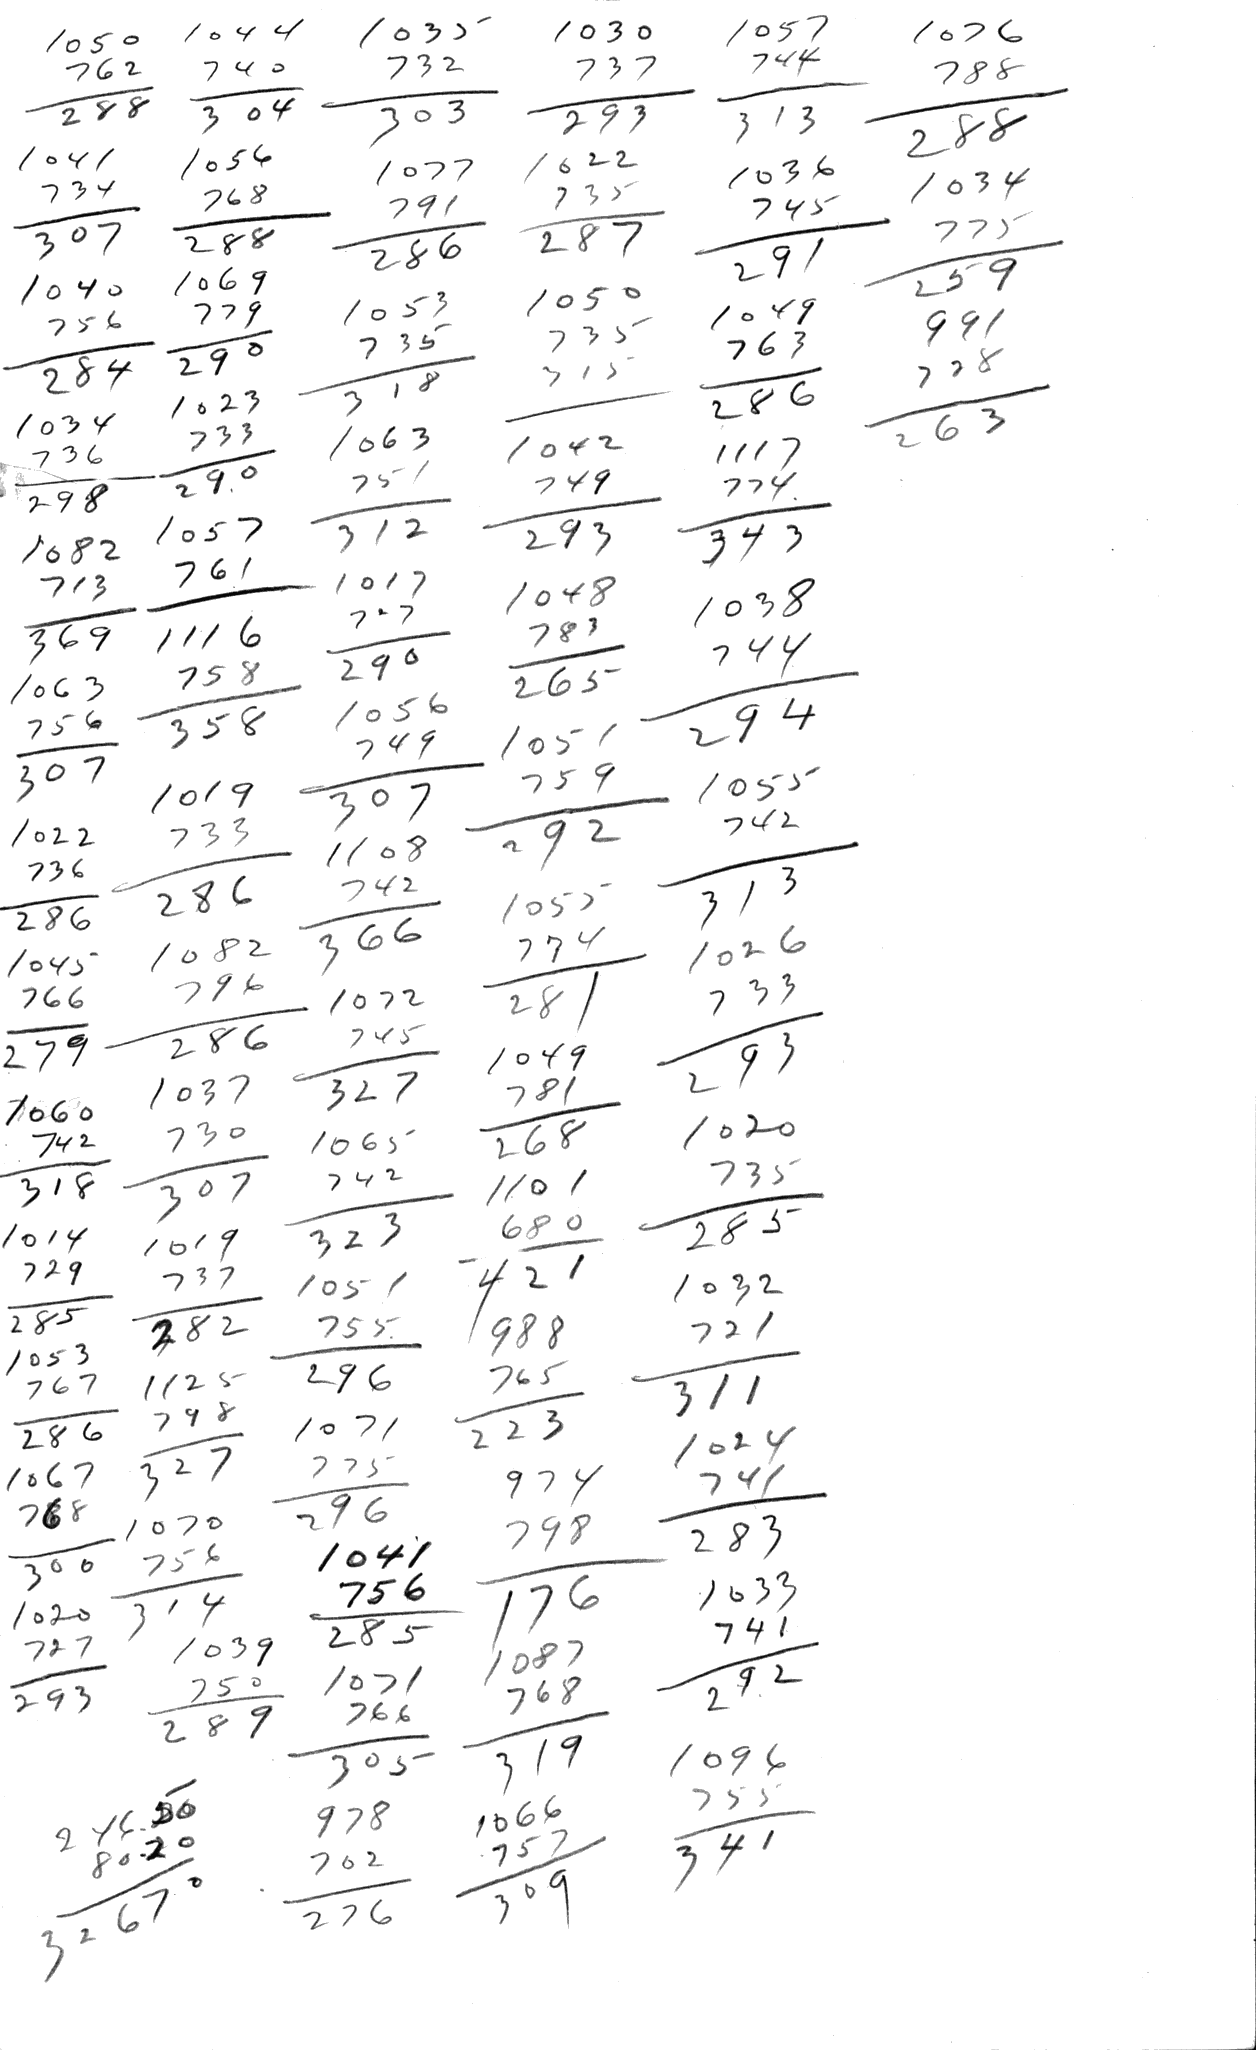 1050
762
288
1041
734
307
1040
756
284
1034
736
298
1082
713
369
1063
756
307
1022
736
286
1045
766
279
1060
742
318
1014
729
285
1053
767
286
1067
768
300
1020
727
293
246.50
80.20
32670
1044
740
304
1056
768
288
1069
779
290
1023
733
290
1057
761
1116
758
358
1019
733
286
1082
796
286
1037
730
307
1019
737
282
1125
798
327
1070
756
314
1039
750
289
1035
732
303
1077
791
286
1053
735
318
1063
751
312
1017
727
290
1056
749
307
1108
742
366
1072
745
327
1065
742
323
1051
755
296
1071
775
296
1041
756
285
1071
766
305
978
702
276
1030
737
293
1022
735
287
1050
735
315
1042
749
293
1048
783
265
1051
759
292
1055
774
281
1049
781
268
1101
680
421
988
765
223
974
798
176
1087
768
319
1066
757
309
1057
744
313
1036
745
291
1049
763
286
1117
774
343
1038
744
294
1055
742
313
1026
733
293
1020
735
285
1032
721
311
1024
741
283
1033
741
292
1096
755
341
1076
788
288
1034
775
259
991
728
263